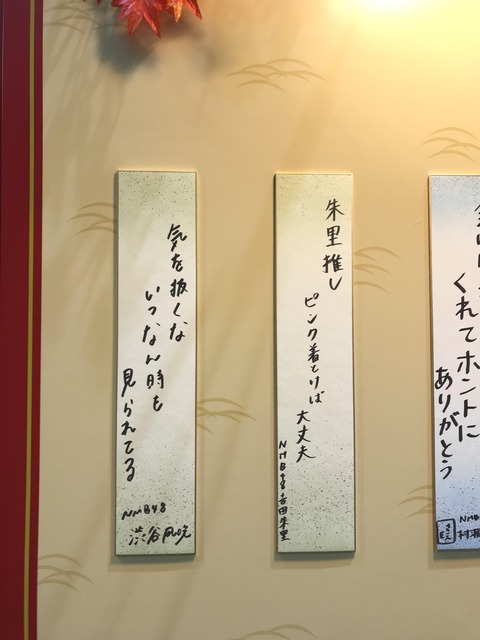 くれてホントに
ありがとう
NMB
朱里推し
ピンク着とけば
大丈夫
NMB48 吉田朱里
気を抜くな
いつなん時も
見られてる
NMB48
渋谷凪咲